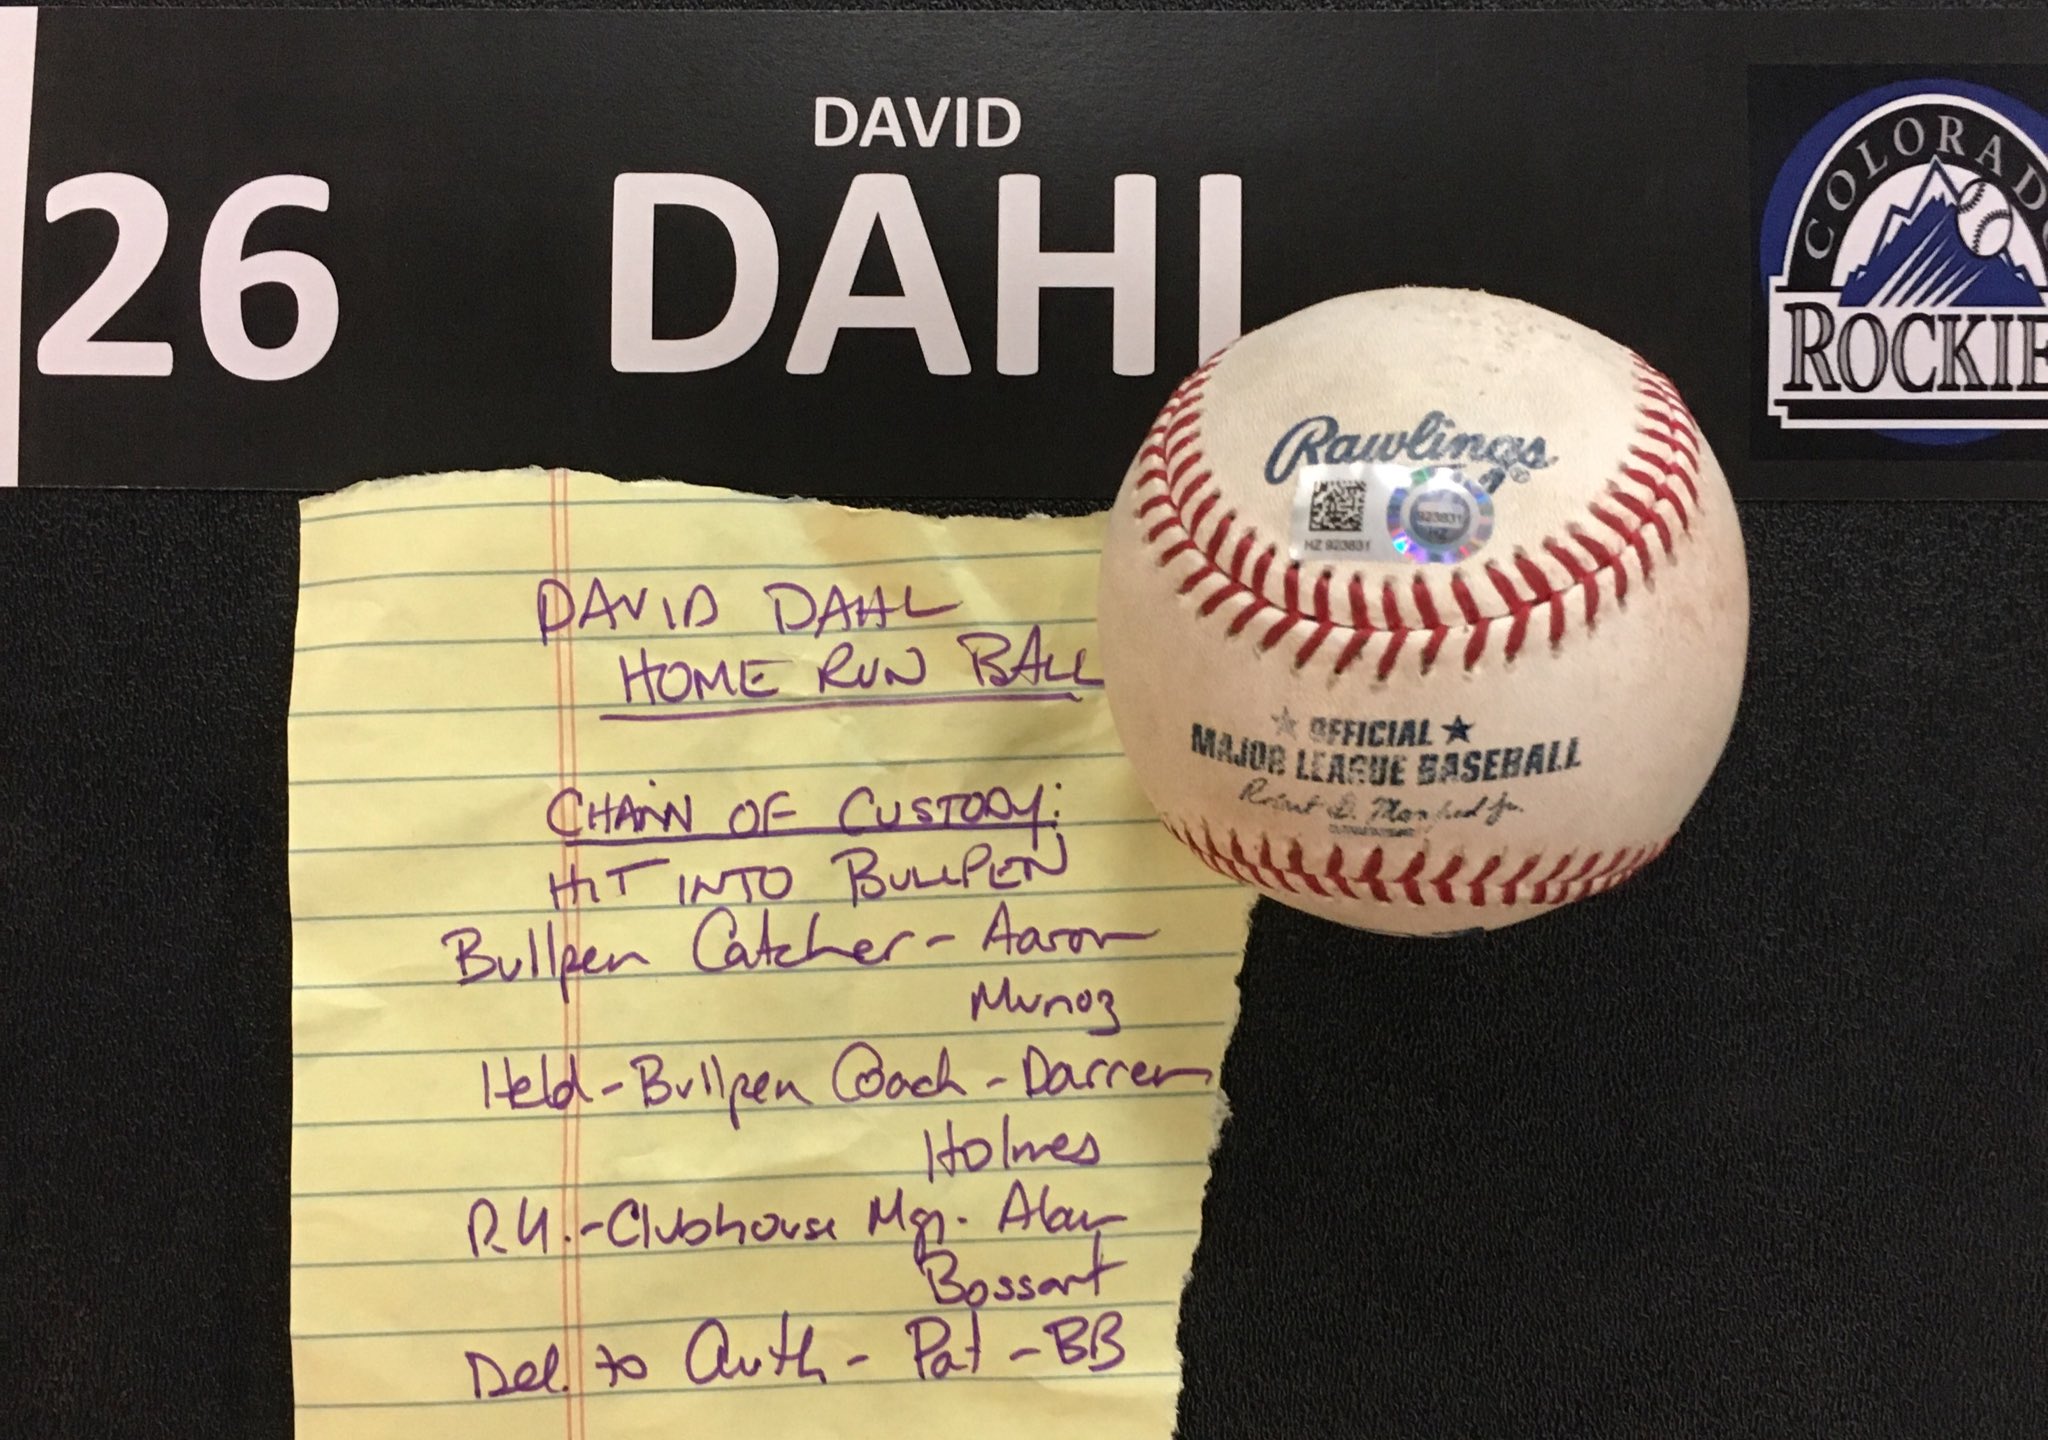 DAVID
26 DAHL
COLORADO
ROCKIE
Rawlings
HZ 923831
923831
HZ
OFFICIAL
MAJOR LEAGUE BASEBALL
Robert D. Manfred Jr.
DAVID DAHL
HOME RUN BALL
CHAIN OF CUSTODY:
HIT INTO BULLPEN
Bullpen Catcher - Aaron
Munoz
Held - Bullpen Coach - Darren
Holmes
P.U. - Clubhouse Mgr. Alan
Bossart
Del. to Auth - Pat - BB